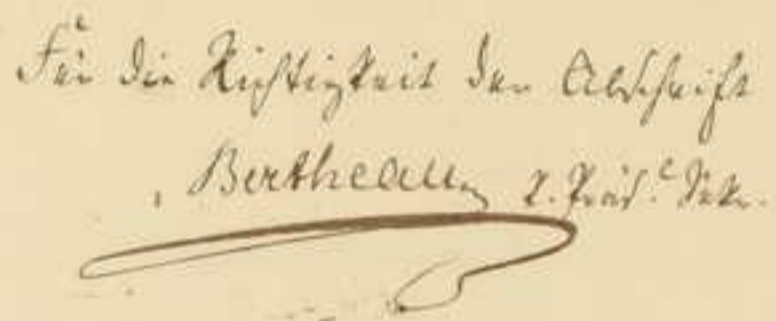 Für die Richtigkeit der Abschrift
Bertheau, k. Präs. Sekr.